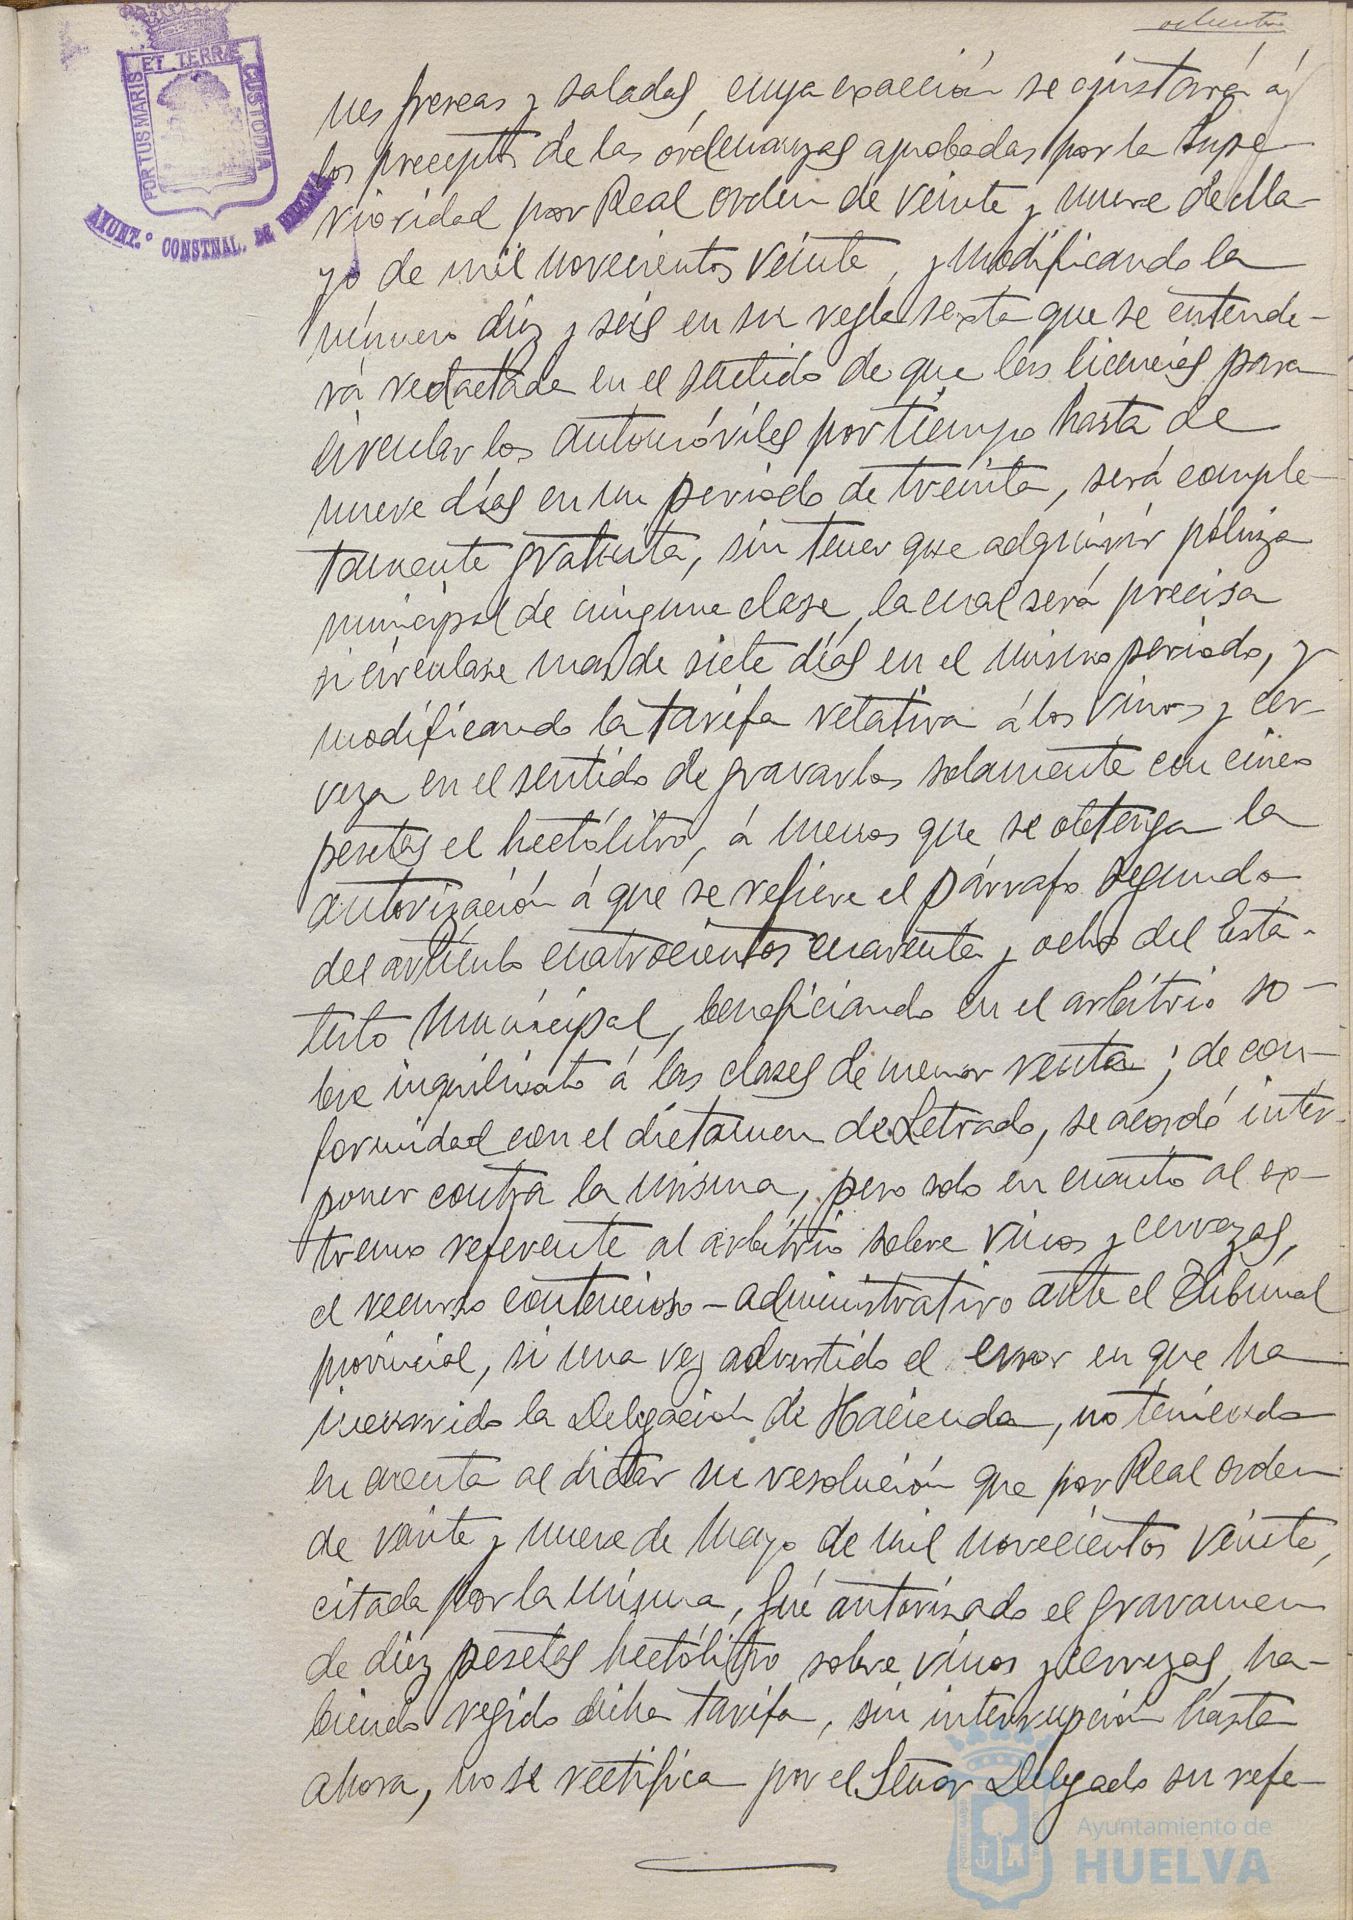 ochenta
PORTUS MARIS ET TERRÆ CUSTODIA
AYUNT.º CONSTNAL. DE HUELVA
nes frescas y saladas, cuya exacción se ajustará á
los preceptos de las órdenanzas aprobadas por la Supe
rioridad por Real orden de veinte y nueve de Ma-
yo de mil novecientos veinte, y modificando la
número diez y seis en su regla sexta que se entende-
rá redactada en el sentido de que las licencias para
circular los automóviles por tiempo hasta de
nueve días en un periodo de treinta, será comple-
tamente gratuita, sin tener que adquirir póliza
municipal de ninguna clase, la cual será precisa
si circulase mas de siete días en el mismo periodo, y
modificando la tarifa relativa á los vinos y cer-
veza en el sentido de gravarlos solamente con cinco
pesetas el hectólitro, á menos que se obtenga la
autorización á que se refiere el párrafo segundo
del artículo cuatrocientos cuarenta y ocho del Esta-
tuto Municipal, beneficiando en el arbitrio so-
bre inquilinato á las clases de menor renta; de con-
formidad con el dictamen de Letrado, se acordó inter-
poner contra la misma, pero solo en cuanto al ex-
tremo referente al arbitrio sobre vinos y cervezas,
el recurso contencioso-administrativo ante el Tribunal
provincial, si una vez advertido el error en que ha
incurrido la Delegación de Hacienda, no teniendo
en cuenta al dictar su resolución que por Real orden
de veinte y nueve de Mayo de mil novecientos veinte,
citada por la misma, fué autorizado el gravamen
de diez pesetas hectólitro sobre vinos y cervezas, ha-
biendo regido dicha tarifa, sin interrupción hasta
ahora, no se rectifica por el Señor Delegado su refe-
Ayuntamiento de
HUELVA